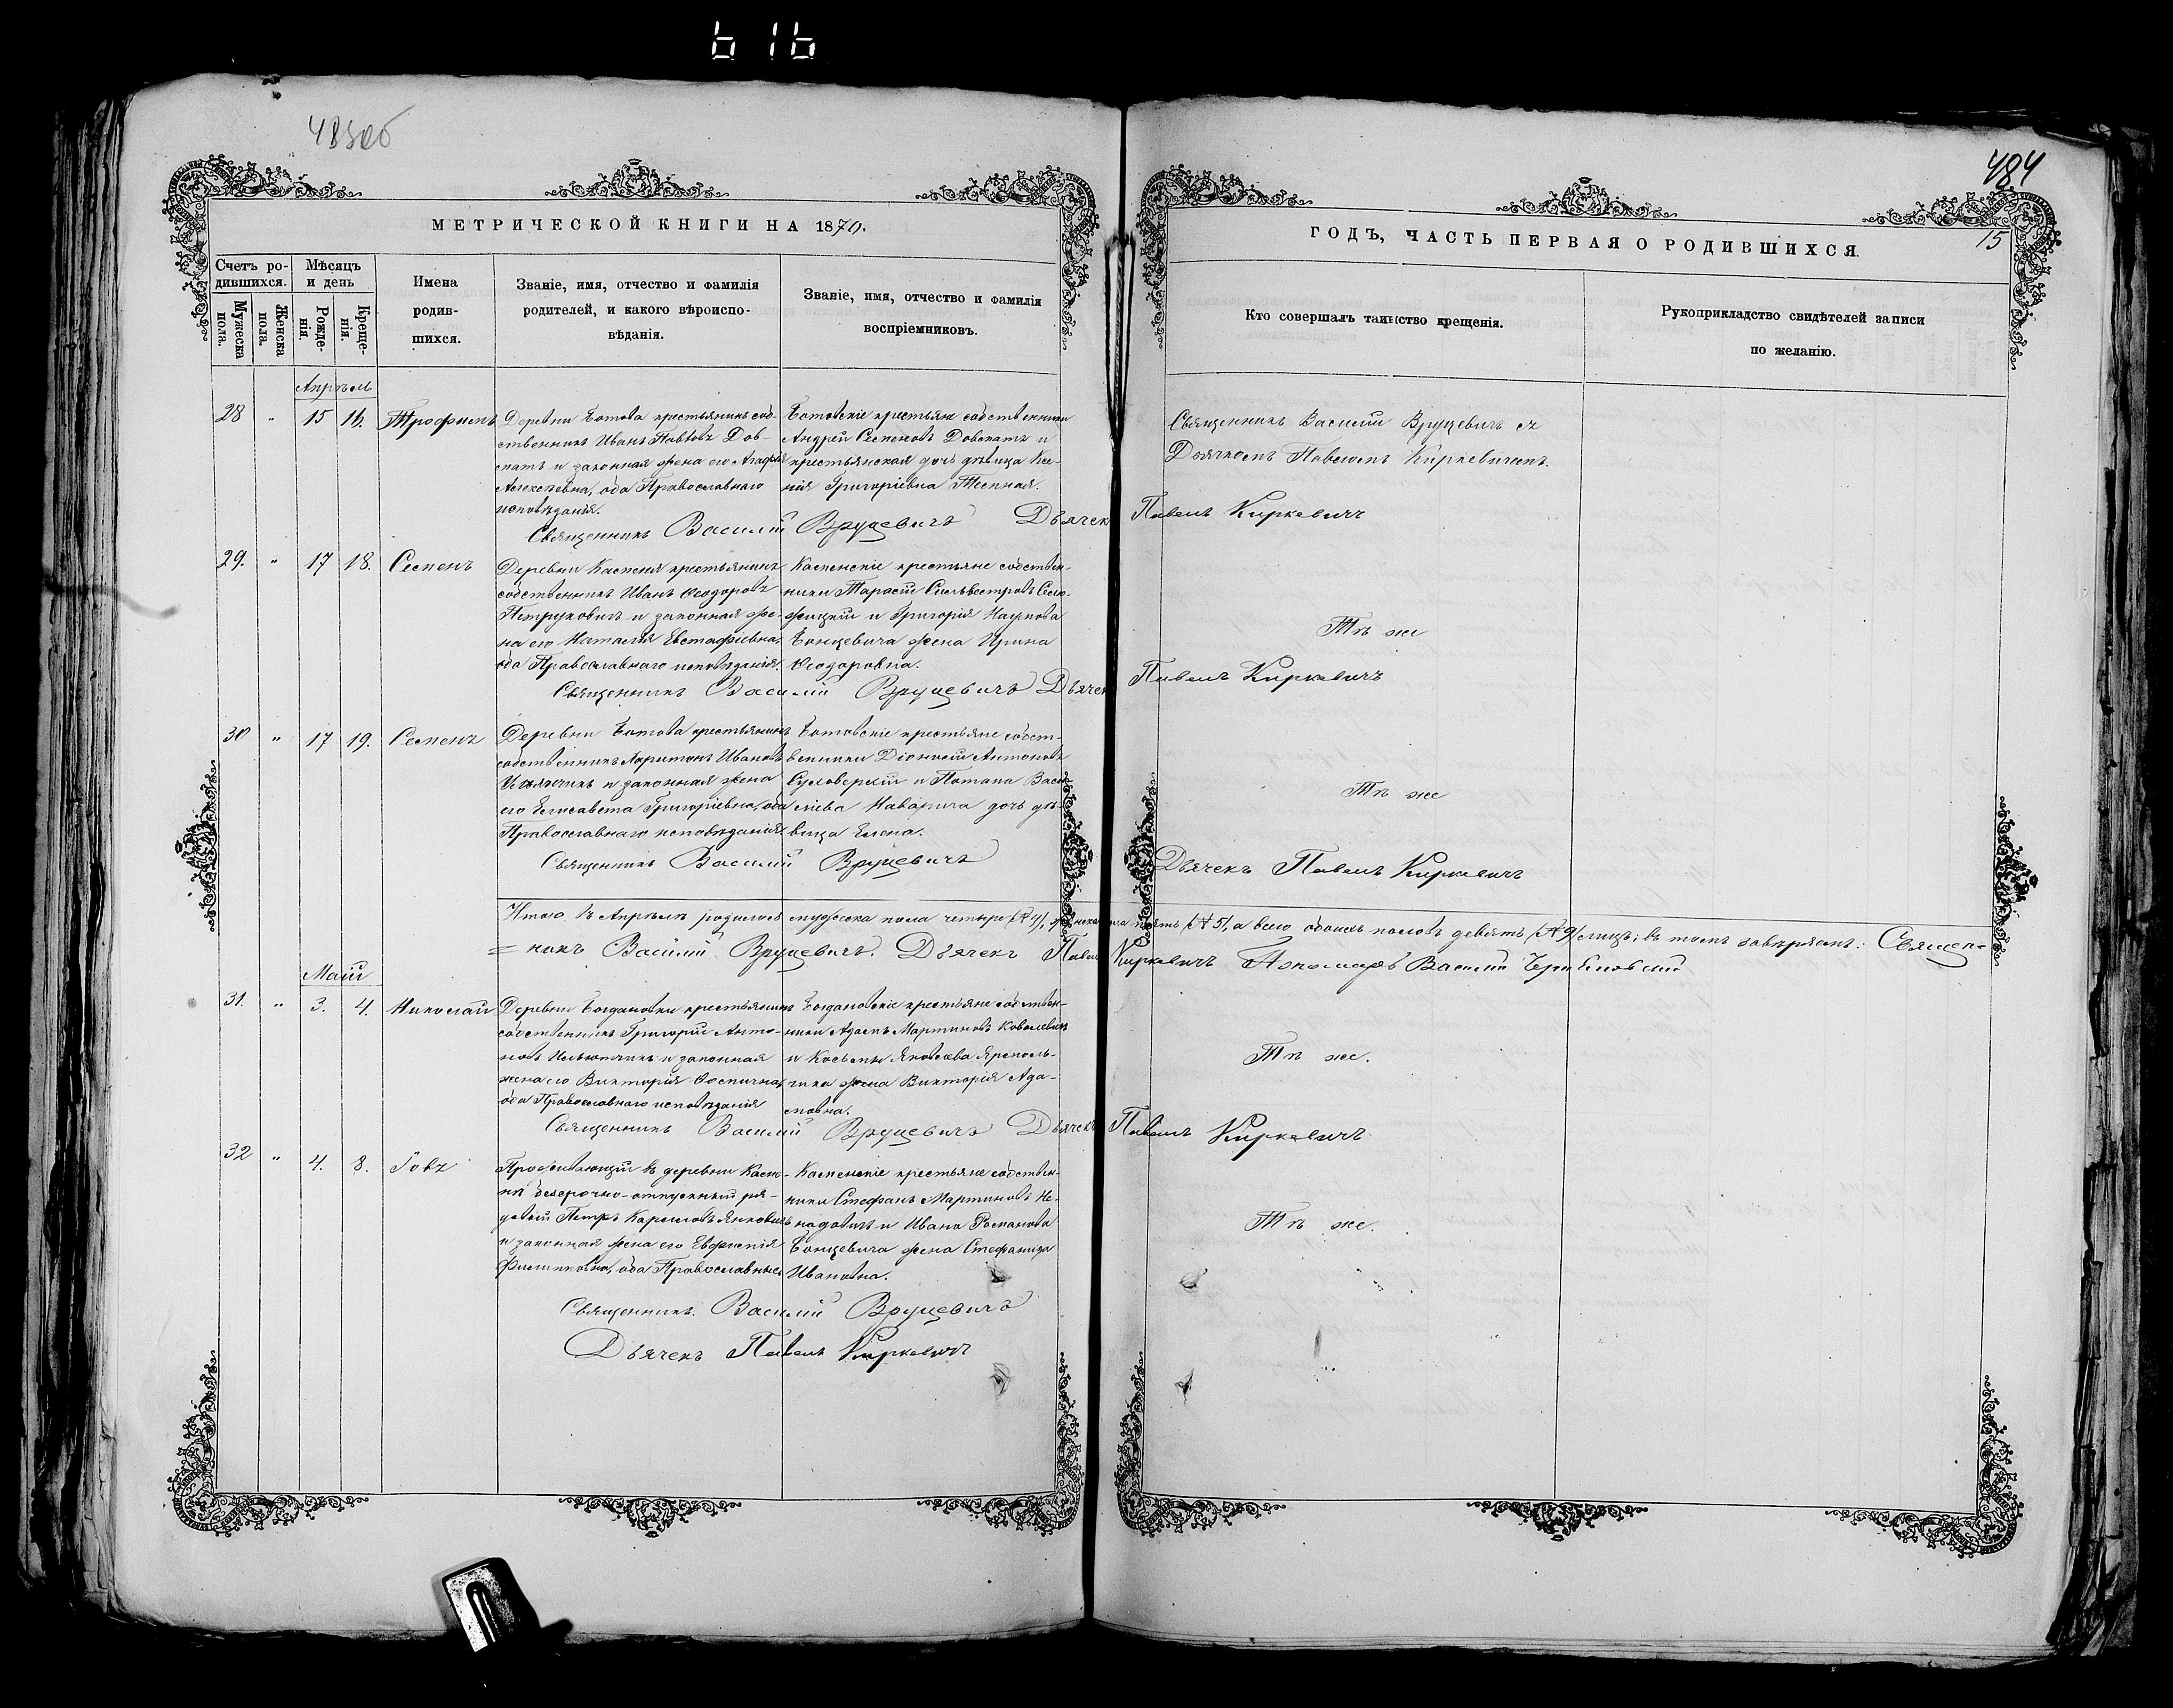 616
483об
484
МЕТРИЧЕСКОЙ КНИГИ НА 1870.
ГОДЪ, ЧАСТЬ ПЕРВАЯ О РОДИВШИХСЯ.
15
Счетъ ро-
дившихся.
Мужеска
пола.
Женска
пола.
Мѣсяцъ
и день
Рожде-
нія.
Креще-
нія.
Имена
родив-
шихся.
Званіе, имя, отчество и фамилія
родителей, и какого вѣроиспо-
вѣданія.
Званіе, имя, отчество и фамилія
воспріемниковъ.
Кто совершалъ таинство крещенія.
Рукоприкладство свидѣтелей записи
по желанію.
Апрѣль
28 " 15 16. Трофимъ
Деревни Ботова крестьянинъ соб-
ственникъ Иванъ Павловъ Дов-
натъ и законная жена его Агафія
Алексѣевна, оба Православнаго
исповѣданія.
Ботовскіе крестьяне собственники
Андрей Семеновъ Довнатъ и
крестьянская дочь дѣвица Ксе-
нія Григоріевна
Священникъ Василій Вруцевичъ съ
Дьячкомъ Павломъ Киркевичемъ.
Священникъ Василій Вруцевичъ Дьячекъ Павелъ Киркевичъ
29. " 17 18. Семенъ
Деревни Каменя крестьянинъ
собственникъ Иванъ Ѳеодоровъ
Петруковичъ и законная же-
на его Наталія Евстафіевна,
оба Православнаго исповѣданія.
Каменскіе крестьяне собствен-
ники Тарасій Сильвестровъ
и Григорія Наумова
Бонцевича жена Ирина
Ѳеодоровна.
Тѣ же
Священникъ Василій Вруцевичъ Дьячекъ Павелъ Киркевичъ
30 " 17 19. Семенъ
Деревни Ботова крестьянинъ
собственникъ Харитонъ Ивановъ
и законная жена
его Елисавета Григоріевна, оба
Православнаго исповѣданія
Ботовскіе крестьяне собст-
венники Діонисій Антоновъ
и Потапа Васи-
ліева дочь дѣ-
вица Елена.
Тѣ же
Священникъ Василій Вруцевичъ
Дьячекъ Павелъ Киркевичъ
Итого въ Апрѣлѣ родилось мужеска пола четыре (№ 4), женска пола пять (№ 5), а всего обоихъ половъ девять (№ 9) лицъ; въ томъ завѣряемъ: Священ-
= никъ Василій Вруцевичъ. Дьячекъ Павелъ Киркевичъ Пономарь Василій
Май
31. " 3. 4. Николай
Деревни Богдановки крестьянинъ
собственникъ Григорій Анто-
новъ и законная
жена его Викторія
оба Православнаго исповѣданія
Богдановскіе крестьяне собствен-
ники Адамъ Мартиновъ Ковалевичъ
и Косьмы Яковлева
жена Викторія Ада-
мовна.
Тѣ же.
Священникъ Василій Вруцевичъ Дьячекъ Павелъ Киркевичъ
32 " 4. 8. Іовъ
Проживающій въ деревни Каме-
нѣ безсрочно-отпускный ря-
довой Петръ Карповъ Янковичъ
и законная жена его Евфимія
Филиповна, оба Православные
Каменскіе крестьяне собствен-
ники Стефанъ Мартиновъ Не-
надовичъ и Ивана Романова
Бонцевича жена Стефанида
Ивановна.
Тѣ же.
Священникъ. Василій Вруцевичъ
Дьячекъ Павелъ Киркевичъ